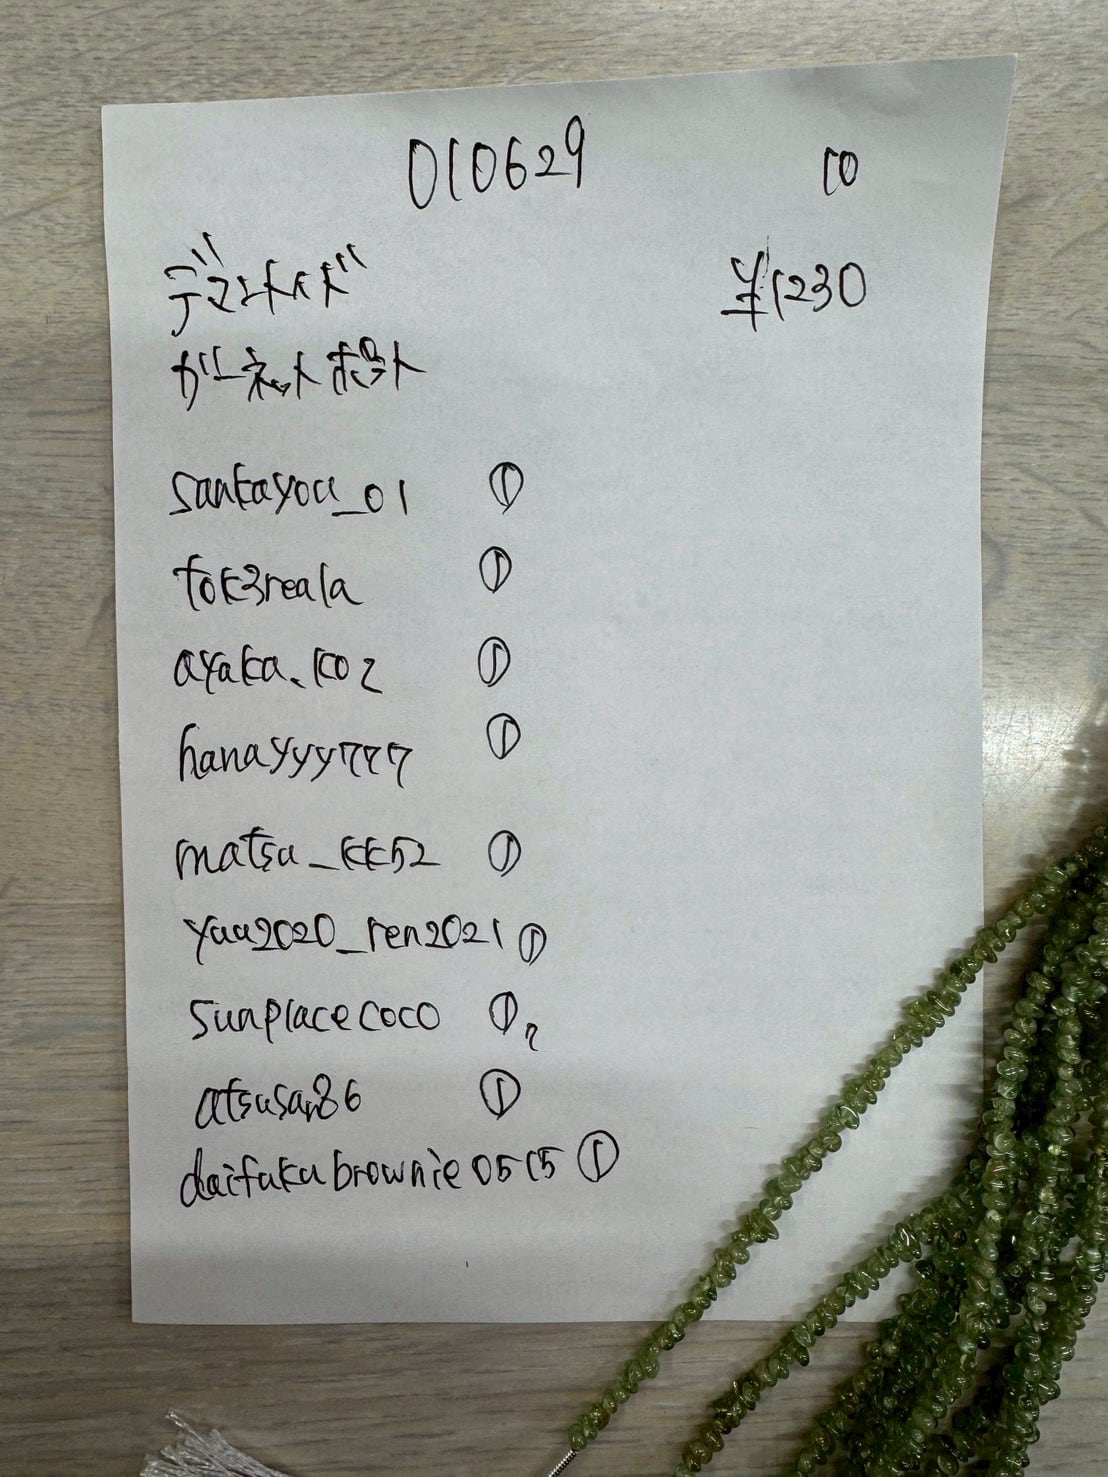 010629 10
デマントイド ¥1230
ガーネットポット
santayou_01 ①
tok3reala ①
ayaka.k02 ①
hanayyy777 ①
matsu_kk52 ①
yuu2020_ren2021 ①
sunplacecoco ①
atsusan86 ①
daifukubrownie0515 ①